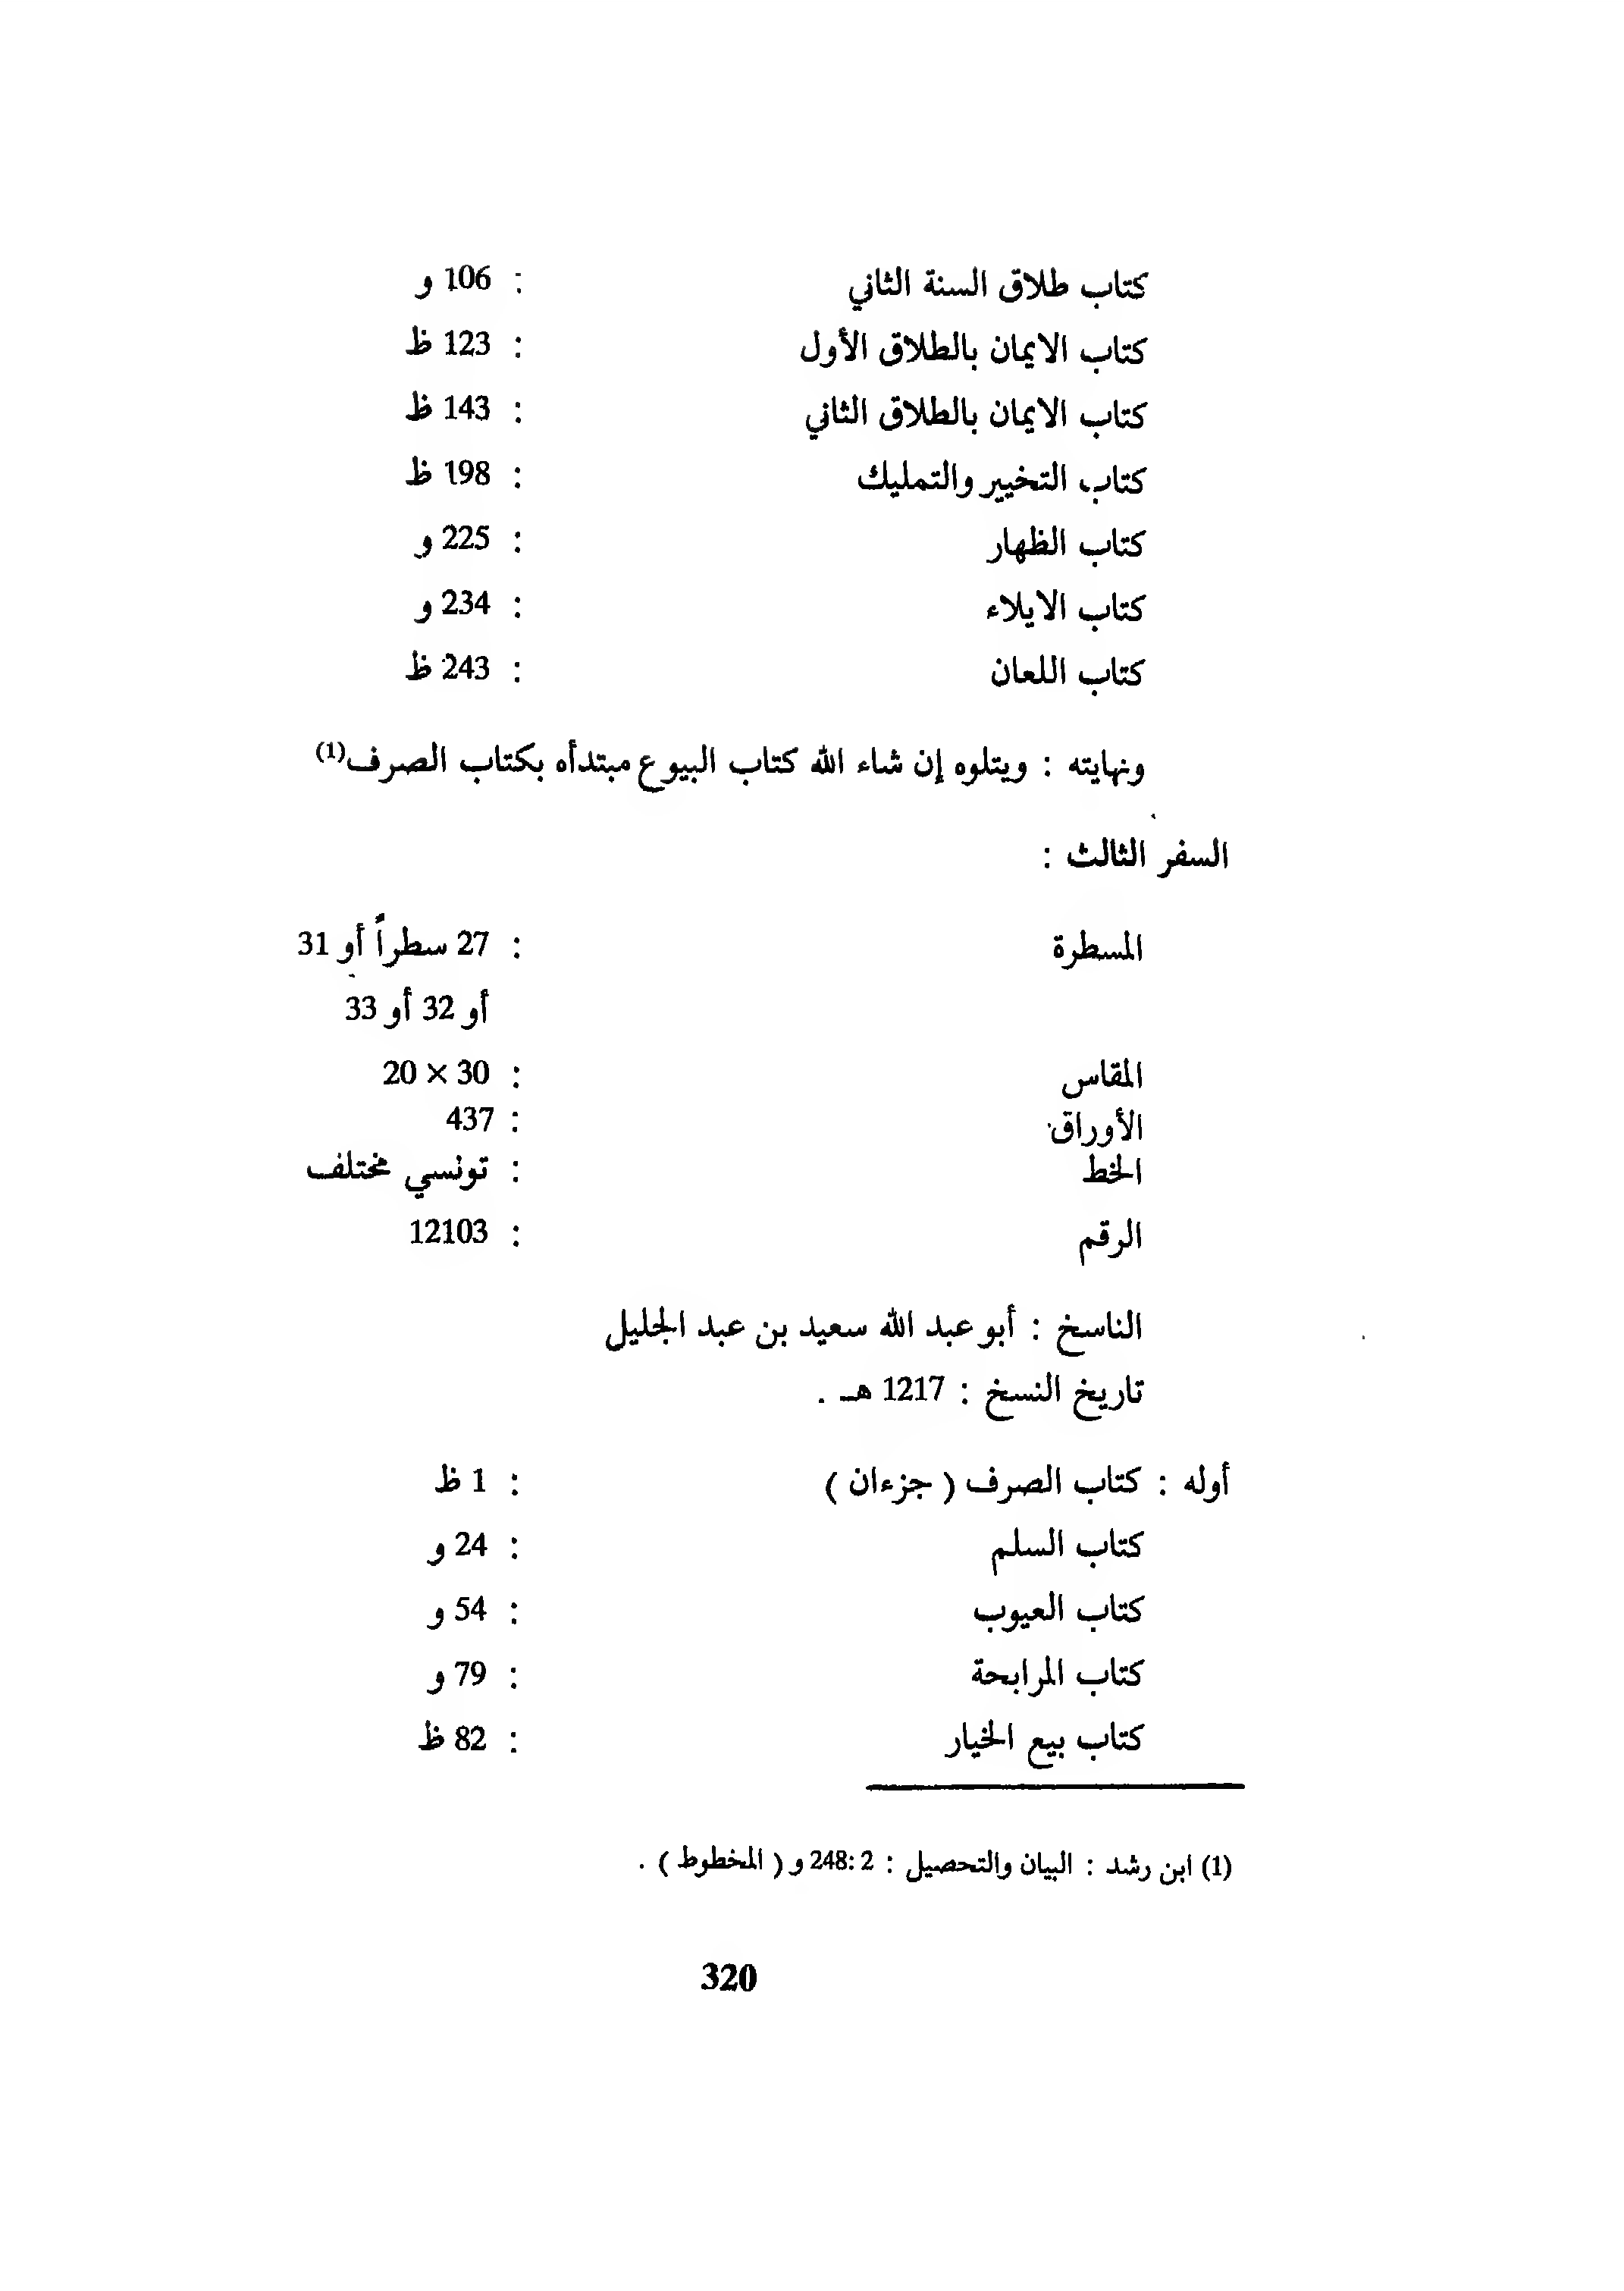 كتاب طلاق السنة الثاني : 106 و
كتاب الايمان بالطلاق الأول : 123 ظ
كتاب الايمان بالطلاق الثاني : 143 ظ
كتاب التخيير والتمليك : 198 ظ
كتاب الظهار : 225 و
كتاب الايلاء : 234 و
كتاب اللعان : 243 ظ
ونهايته : ويتلوه إن شاء الله كتاب البيوع مبتدأه بكتاب الصرف(1)
السفر الثالث :
المسطرة : 27 سطراً أو 31
أو 32 أو 33
المقاس : 30 × 20
الأوراق : 437
الخط : تونسي مختلف
الرقم : 12103
الناسخ : أبو عبد الله سعيد بن عبد الجليل
تاريخ النسخ : 1217 هـ .
أوله : كتاب الصرف ( جزءان ) : 1 ظ
كتاب السلم : 24 و
كتاب العيوب : 54 و
كتاب المرابحة : 79 و
كتاب بيع الخيار : 82 ظ
(1) ابن رشد : البيان والتحصيل : 2 :248 و ( المخطوط ) .
320